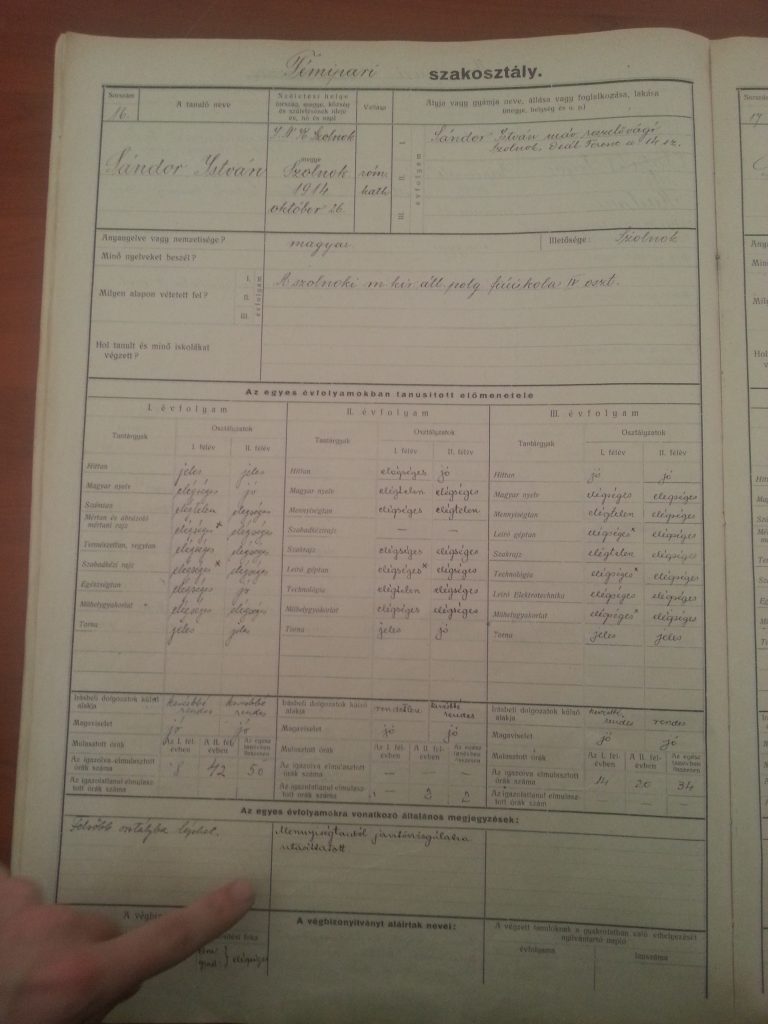 Fémipari szakosztály.
Sorszám 16.
A tanuló neve
Születési helye
(ország, megye, község
és születésének ideje
év, hó és nap)
Vallása
Atyja vagy gyámja neve, állása vagy foglalkozása, lakása
(megye, helység és u. p.)
Sándor István
Szolnok
megye
Szolnok
1914
október 26.
róm.
kath.
évfolyam I. II. III.
Sándor István máv. reszelővágó
Szolnok. Deák Ferenc u 14 sz.
Anyanyelve vagy nemzetisége? magyar Illetősége: Szolnok
Minő nyelveket beszél?
Milyen alapon vétetett fel? I. II. III. évfolyam A szolnoki m. kir. áll. polg. fiúiskola IV oszt.
Hol tanult és minő iskolákat
végzett?
Az egyes évfolyamokban tanusított előmenetele
I. évfolyam II. évfolyam III. évfolyam
Tantárgyak Osztályzatok Tantárgyak Osztályzatok Tantárgyak Osztályzatok
I. félév II. félév I. félév II. félév I. félév II. félév
Hittan jeles jeles Hittan elégséges jó Hittan jó jó
Magyar nyelv elégséges jó Magyar nyelv elégtelen elégséges Magyar nyelv elégséges elégséges
Számtan elégtelen elégséges Mennyiségtan elégséges elégtelen Mennyiségtan elégtelen elégséges
Mértan és ábrázoló
mértani rajz elégséges* elégséges Szabadkézi rajz — — Leíró géptan elégséges* elégséges
Természettan, vegytan elégséges elégséges Szakrajz elégséges elégséges Szakrajz elégtelen elégséges
Szabadkézi rajz elégséges* elégséges Leíró géptan elégséges* elégséges Technológia elégséges* elégséges
Egészségtan elégséges jó Technológia elégtelen elégséges Leíró Elektrotechnika elégséges elégséges
Műhelygyakorlat elégséges elégséges Műhelygyakorlat elégséges elégséges Műhelygyakorlat elégséges* elégséges
Torna jeles jeles Torna jeles jó Torna jeles jeles
Írásbeli dolgozatok külső
alakja kevésbbé rendes kevésbbé rendes Írásbeli dolgozatok külső
alakja rendetlen kevésbbé rendes Írásbeli dolgozatok külső
alakja kevésbbé rendes rendes
Magaviselet jó jó Magaviselet jó jó Magaviselet jó jó
Mulasztott órák Az I. fél-
évben A II. fél-
évben Az egész
tanévben
összesen Mulasztott órák Az I. fél-
évben A II. fél-
évben Az egész
tanévben
összesen Mulasztott órák Az I. fél-
évben A II. fél-
évben Az egész
tanévben
összesen
Az igazolva elmulasztott
órák száma 8 42 50 Az igazolva elmulasztott
órák száma — — Az igazolva elmulasztott
órák száma 14 20 34
Az igazolatlanul elmulasz-
tott órák száma Az igazolatlanul elmulasz-
tott órák száma 2 2 Az igazolatlanul elmulasz-
tott órák száma —
Az egyes évfolyamokra vonatkozó általános megjegyzések:
Felsőbb osztályba léphet.
Mennyiségtanból javítóvizsgálatra
utasíttatott
A végbiz
A végbizonyítványt aláírtak nevei:
A végzett tanulóknak a gyakorlatban való elhelyezését
nyilvántartó napló
évfolyama lapszáma
foka
elégséges
Sorszám
17